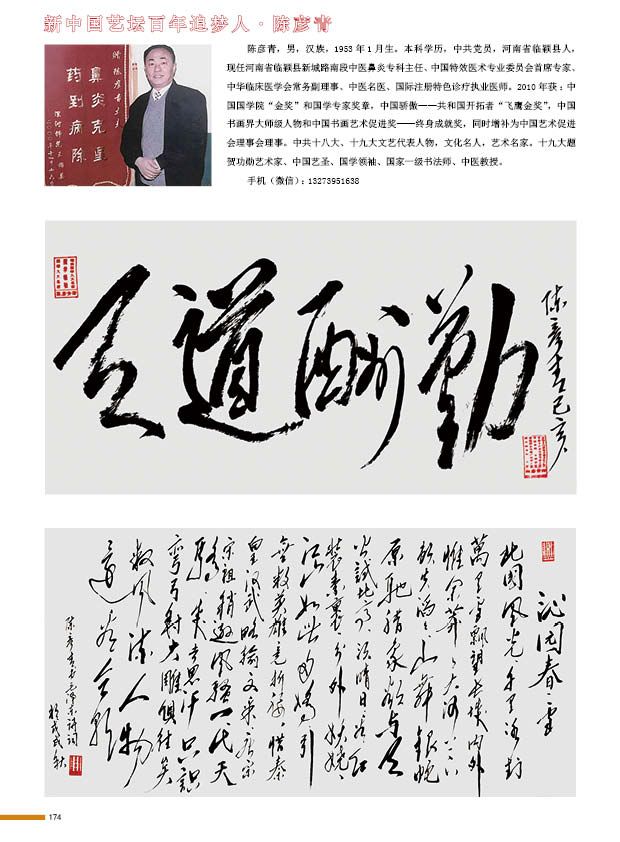 新中国艺坛百年追梦人·陈彦青
陈彦青，男，汉族，1953 年 1 月生。本科学历，中共党员，河南省临颍县人，
现任河南省临颍县新城路南段中医鼻炎专科主任、中国特效医术专业委员会首席专家、
中华临床医学会常务副理事、中医名医、国际注册特色诊疗执业医师。2010 年获：中
国国学院“金奖”和国学专家奖章，中国骄傲——共和国开拓者“飞鹰金奖”，中国
书画界大师级人物和中国书画艺术促进奖——终身成就奖，同时增补为中国艺术促进
会理事会理事。中共十八大、十九大文艺代表人物，文化名人，艺术名家。十九大题
贺功勋艺术家、中国艺圣、国学领袖、国家一级书法师、中医教授。
手机（微信）：13273951638
鼻炎克星
药到病除
天道酬勤
陈彦青己亥
沁园春雪
北国风光千里冰封
萬里雪飘望长城内外
惟余莽〻大河上下
顿失滔〻山舞银蛇
原驰腊象欲与天
公试比高须晴日看红
装素裹分外妖娆
江山如此多娇引
无数英雄竞折腰惜秦
皇汉武略输文采唐宗
宋祖稍逊风骚一代天
骄成吉思汗只识
弯弓射大雕俱往矣
数风流人物
还看今朝
174